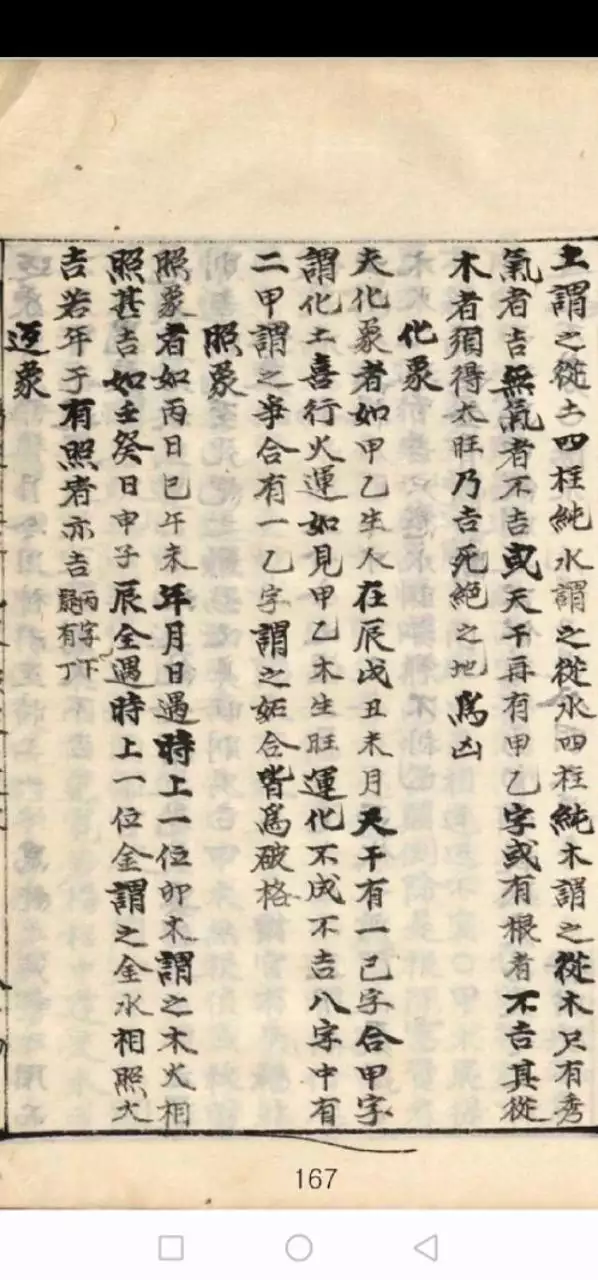 土謂之從土四柱純水謂之從水四柱純木謂之從木只有秀
氣者吉無氣者不吉或天干再有甲乙字或有根者不吉其從
木者須得太旺乃吉死絕之地爲凶
化象
夫化象者如甲乙生人在辰戌丑未月天干有一己字合甲字
謂化土喜行火運如見甲乙木生旺運化不成不吉八字中有
二甲謂之爭合有一乙字謂之妬合皆爲破格
照象
照象者如丙日巳午未年月日遇時上一位卯木謂之木火相
照甚吉如壬癸日申子辰全遇時上一位金謂之金水相照大
吉若年干有照者亦吉丙字下疑有丁
167